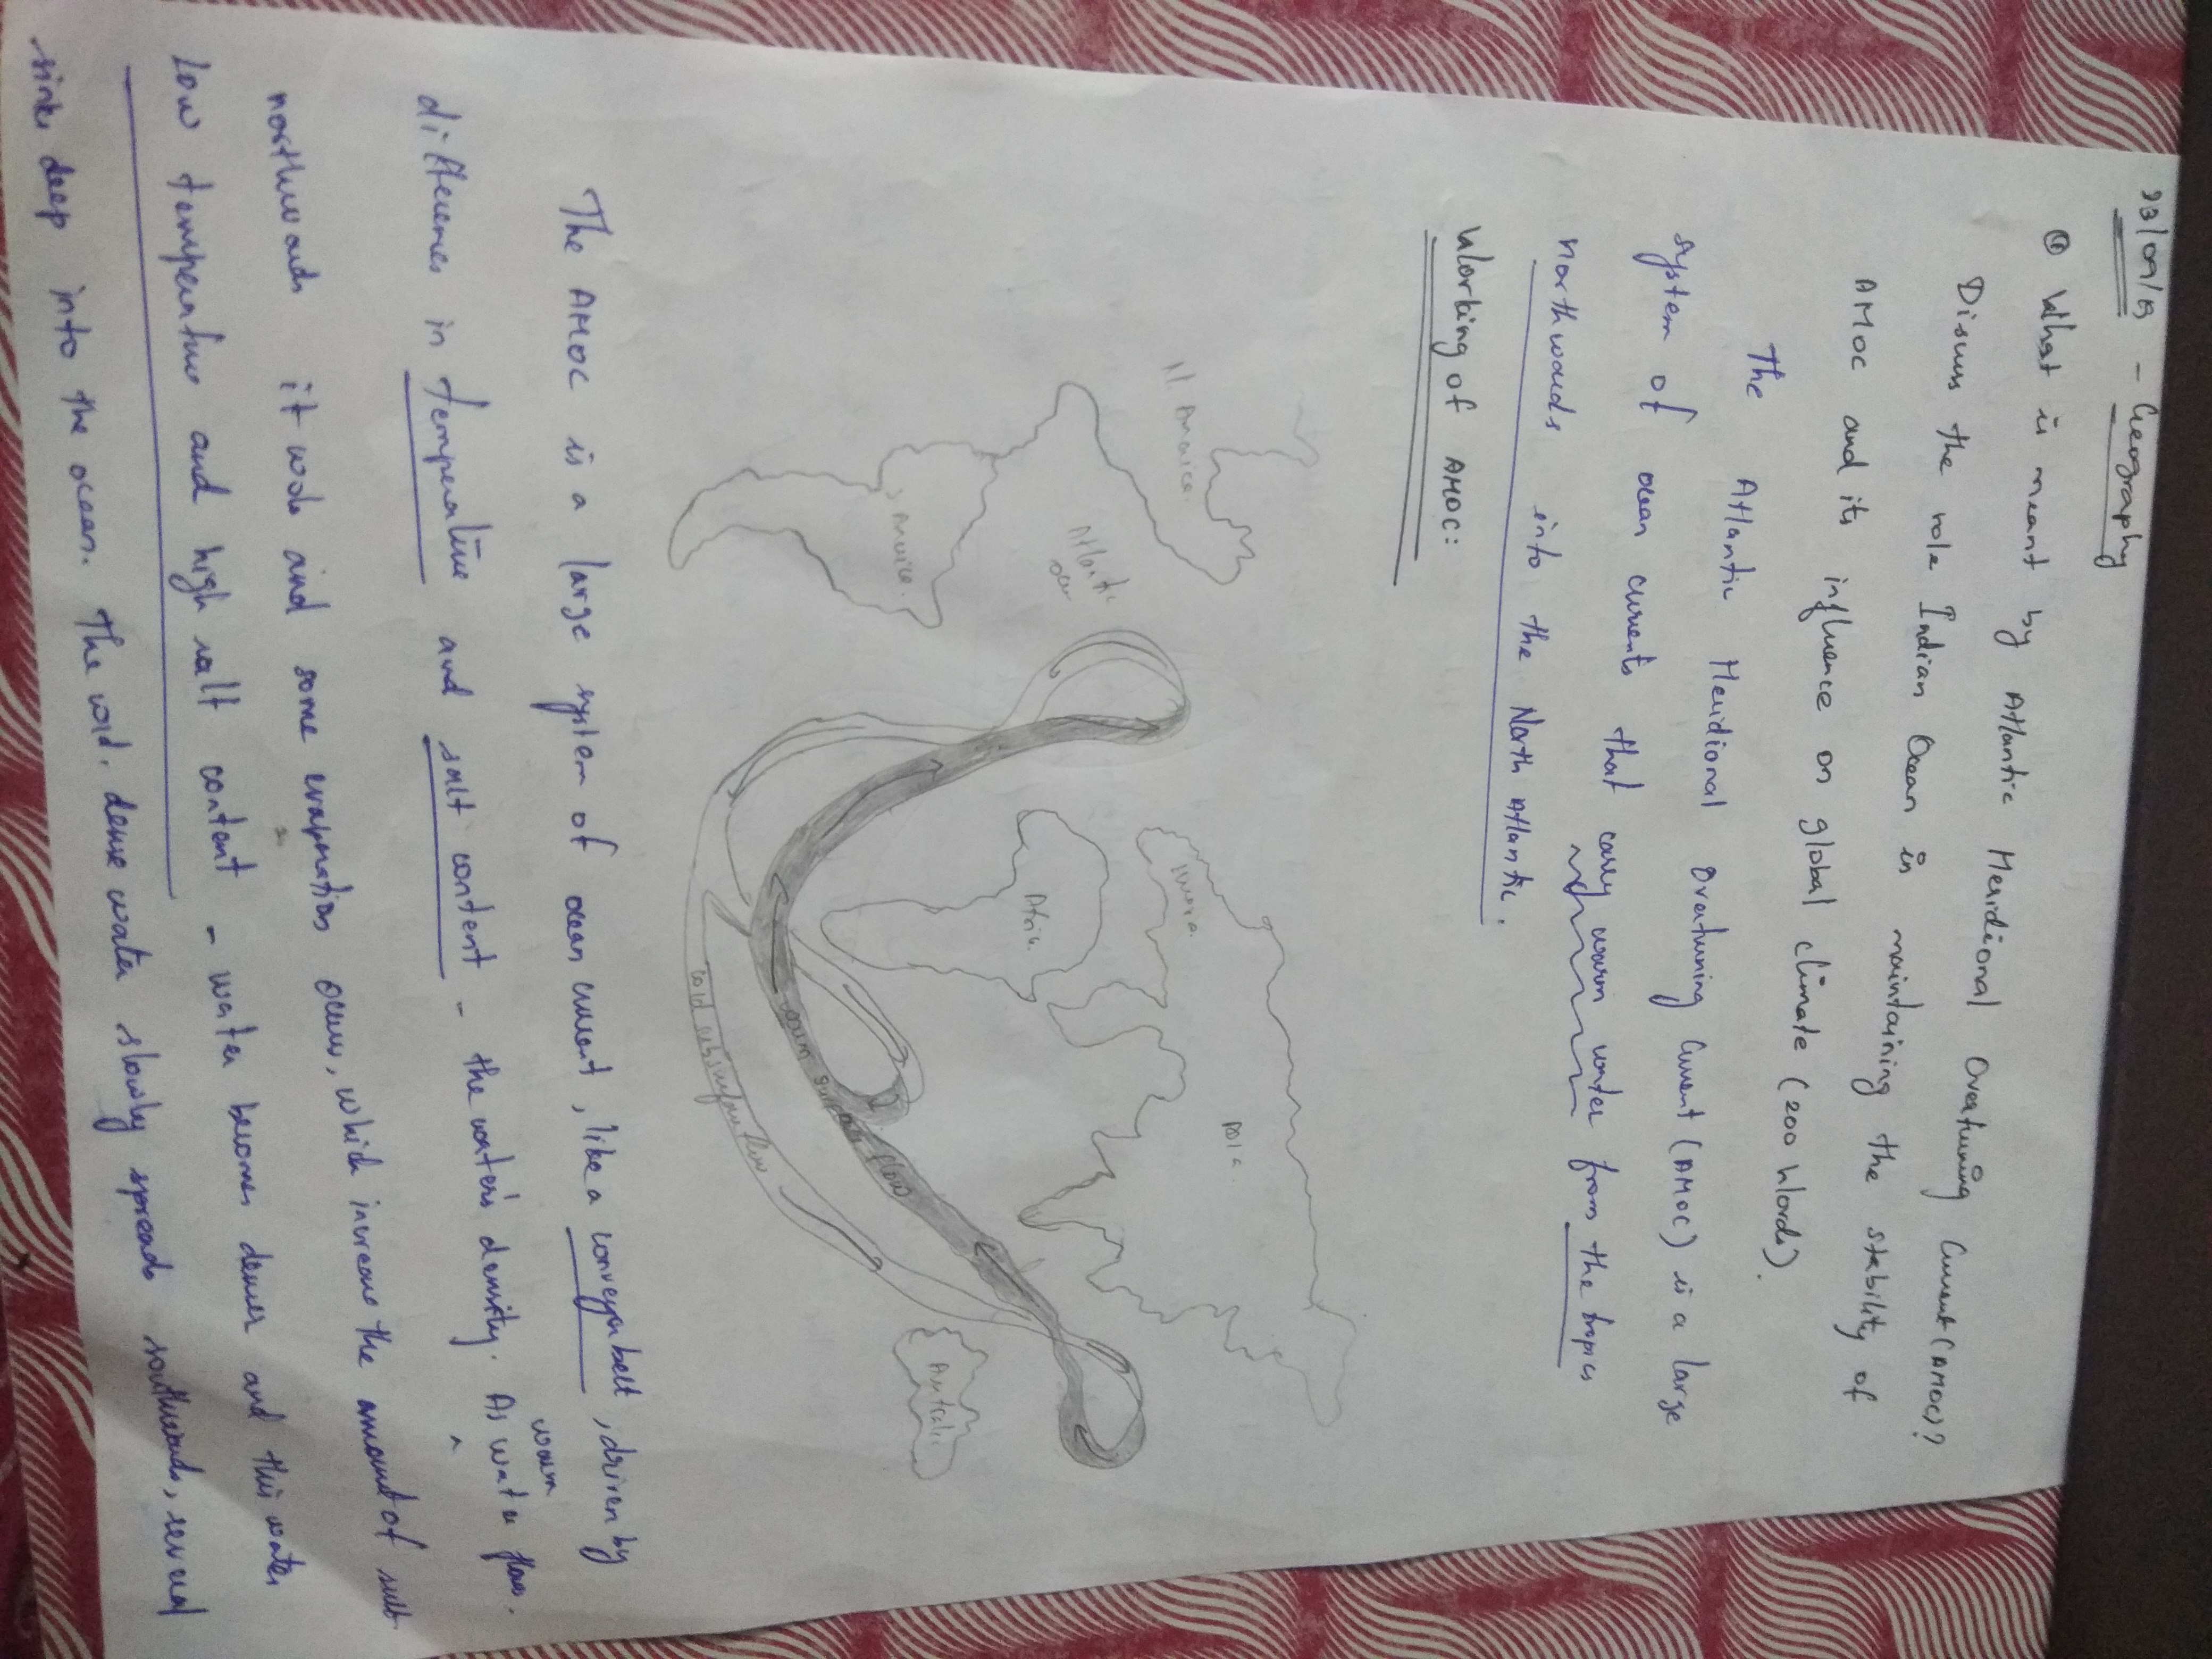 23/09/19 - Geography
① What is meant by Atlantic Meridional Overturning Current (AMOC)?
Discuss the role Indian Ocean in maintaining the stability of
AMOC and its influence on global climate (200 Words).
The Atlantic Meridional Overturning Current (AMOC) is a large
system of ocean currents that carry warm water from the tropics
northwards into the North Atlantic.
Working of AMOC:
N. America.
Atlantic
Africa.
Asia
Australia
warm surface flow
cold subsurface flow
The AMOC is a large system of ocean current, like a conveyor belt, driven by
differences in temperature and salt content - the water's density. As warm water flows
northwards it cools and some evaporation occurs, which increase the amount of salt
Low temperature and high salt content - water becomes denser and this water
sinks deep into the ocean. The cold, dense water slowly spreads southwards, several